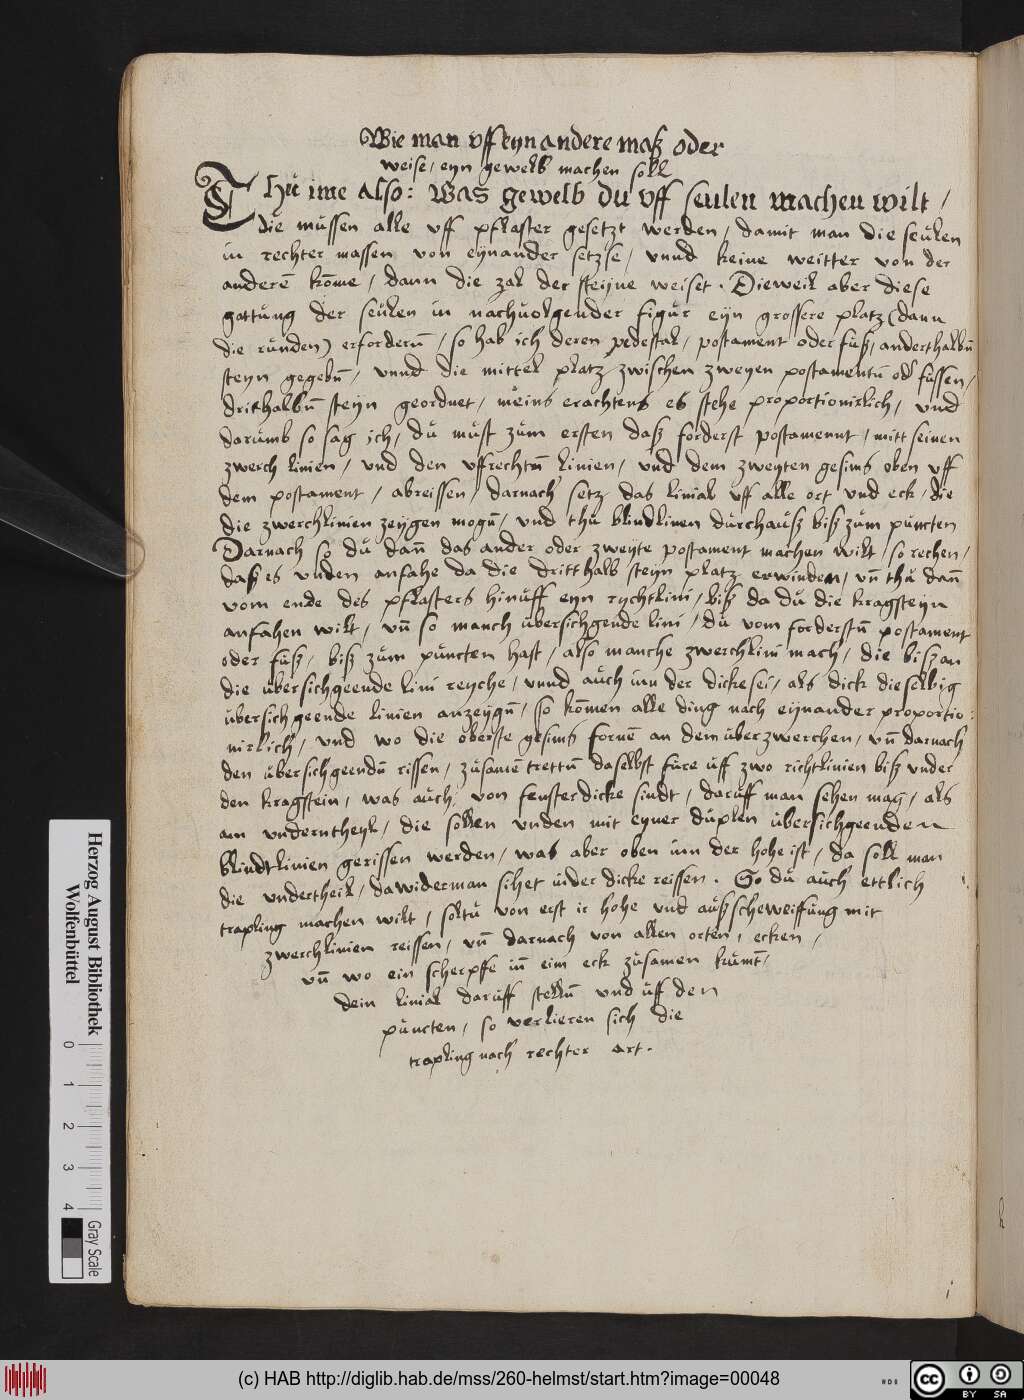 Wie man vff eyn andere maß oder
weise, eyn gewelb machen soll
Thu ime also: Was gewelb du vff seulen machen wilt,
die mussen alle vff pflaster gesetzt werden, damit man die seulen
in rechter massen von eynander setzse, vnnd keine weitter von der
anderē kōme, dann die zal der steyne weiset. Dieweil aber diese
gattung der seulen in nachuolgender figur eyn grossere platz (dann
die runden) erfordernn, so hab ich deren pedestal, postament oder fuß, anderthalbn̄
steyn gegebn̄, vnnd die mittel platz zwischen zweyen postamentn̄ od' fussen,
drithalbn̄ steyn geordnet, meins erachtens es stehe proportionirlich, vnd
darumb so sag ich, du must zum ersten daß forderst postamennt, mitt seinen
zwerch linien, vnd den vffrechtn̄ linien, vnd dem zweyten gesims oben vff
dem postament, abreissen, darnach setz das linial vff alle ort vnd eck, die
die zwerchlinien zeygen mogn̄, vnd thu blindlinen durchauß biß zum puncten
Darnach so du dan̄ das ander oder zweyte postament machen wilt, so rechen,
daß es vnden anfahe da die dritthalb steyn platz erwinden, vn̄ thu dan̄
vom ende des pflasters hinuff eyn rychtlini, biß da du die kragsteyn
anfahen wilt, vn̄ so manch ubersichgende lini, du vom forderstn̄ postament
oder fuß, biß zum puncten hast, also manche zwerchlini mach, die biß an
die ubersichgeende lini reyche, vnnd auch inn der dicke sei, als dick dieselbig
ubersichgeende linien anzeygn̄, so kōmen alle ding nach eynander proportio:
nirlich, vnd wo die oberste gesims fornē an dem uberzwerchen, vn̄ darnach
den ubersichgeendn̄ rissen, zusamē trettn̄ daselbst fure uff zwo richtlinien biß vnder
den kragstein, was auch von fensterdicke sindt, daruff man sehen mag, als
am vnderntheyl, die sollen vnden mit eyner duplen ubersichgeenden
blindtlinien gerissen werden, was aber oben inn der hohe ist, da soll man
die vndertheil, dawiderman sihet inder dicke reissen. So du auch ettlich
trapling machen wilt, soltu von erst ir hohe vnd außscheweiffung mit
zwerchlinien reissen, vn̄ darnach von allen orten, ecken,
vn̄ wo ein scherpffe in̄ eim eck zusamen kumt,
dein linial daruff stelln̄ vnd uff den
puncten, so verlieren sich die
trapling nach rechter art.
Herzog August Bibliothek
Wolfenbüttel
0 1 2 3 4
Gray Scale
(c) HAB http://diglib.hab.de/mss/260-helmst/start.htm?image=00048
cc BY SA